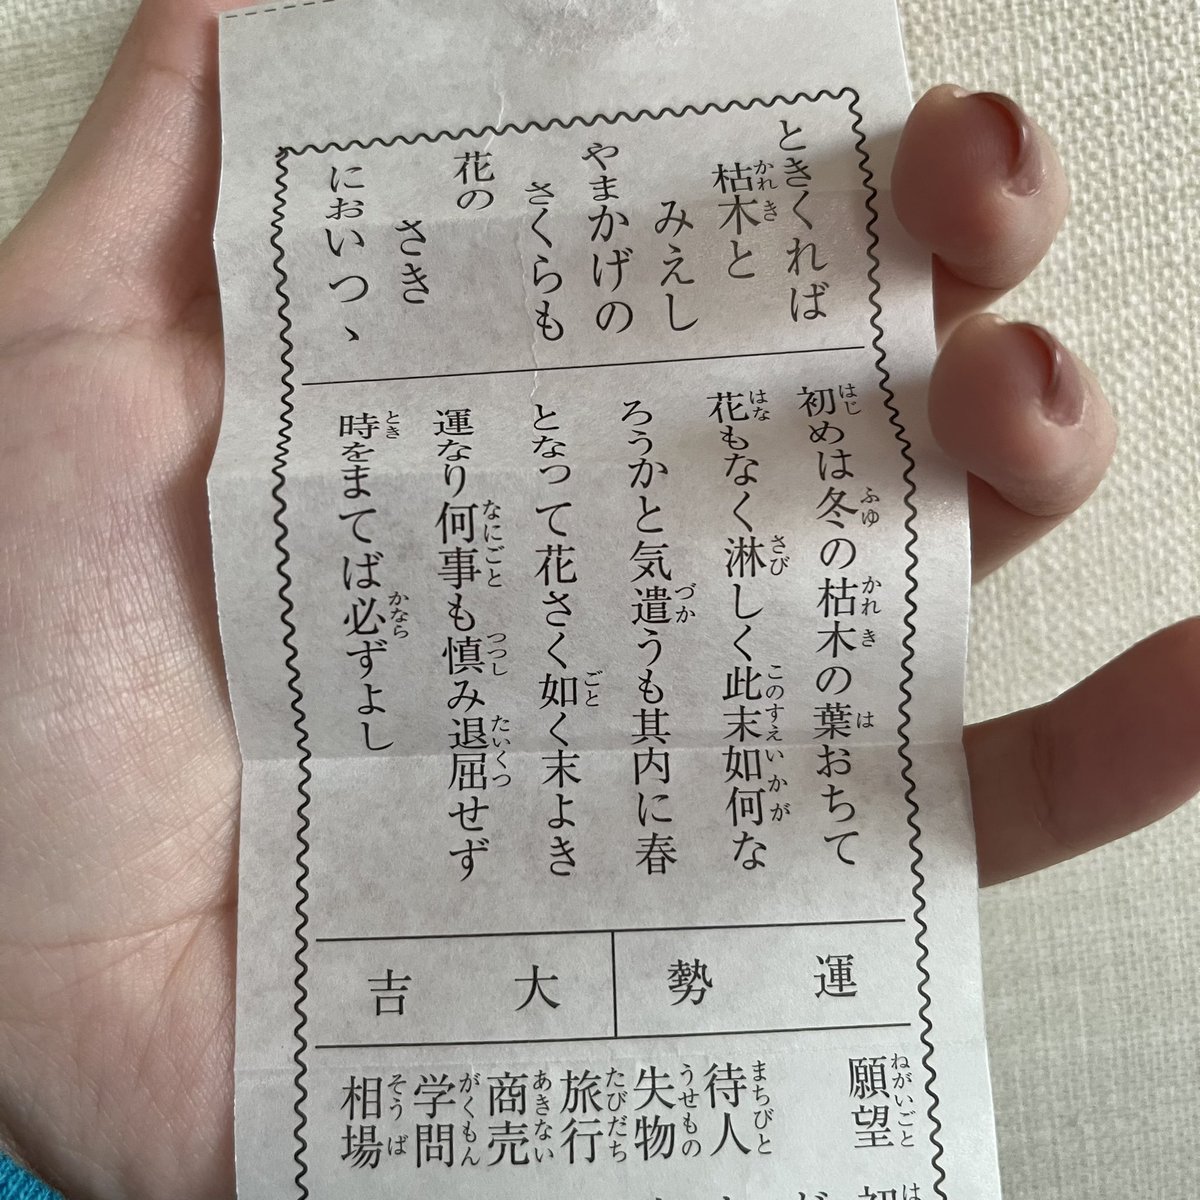 ときくれば
枯木と
みえし
やまかげの
さくらも
花の
さき
においつゝ
初めは冬の枯木の葉おちて
花もなく淋しく此末如何な
ろうかと気遣うも其内に春
となって花さく如く末よき
運なり何事も慎み退屈せず
時をまてば必ずよし
運勢
大吉
願望
待人
失物
旅行
商売
学問
相場
初